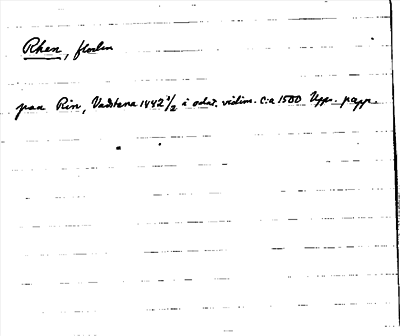 Rhen, floden
paa Rin, Vadstena 1442 3/2 i odat. vidim. c:a 1500 Upps. papp.